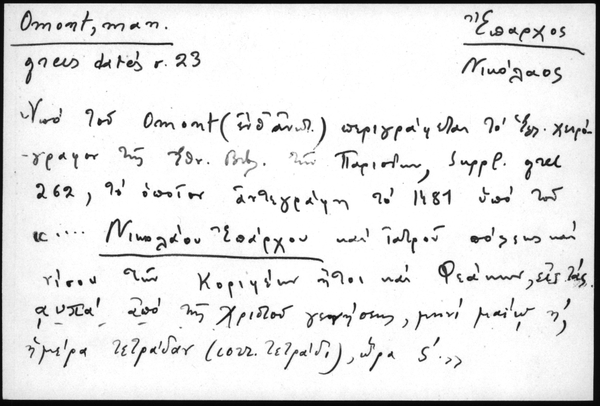 Omont, man. Ἔπαρχος
grecs datés σ. 23 Νικόλαος
Ὑπὸ τοῦ Omont (ἔνθ' ἀνωτ.) περιγράφεται τὸ Ἑλ. χειρό-
γραφον τῆς Ἐθν. Βιβ. τῶν Παρισίων, Suppl. grec
262, τὸ ὁποῖον ἀντεγράφη τὸ 1481 ὑπὸ τοῦ
κ···· Νικολάου Ἐπάρχου καὶ ἰατροῦ πόλεως καὶ
νήσου τῶν Κορυφῶν ἤτοι καὶ Φεάκων, εἰς τὰς
αυπα΄ ἀπὸ τῆς Χριστοῦ γεννήσεως, μηνὶ μαίῳ η΄,
ἡμέρα τετράδαν (sic. τετράδι), ὥρα ϛ΄.»